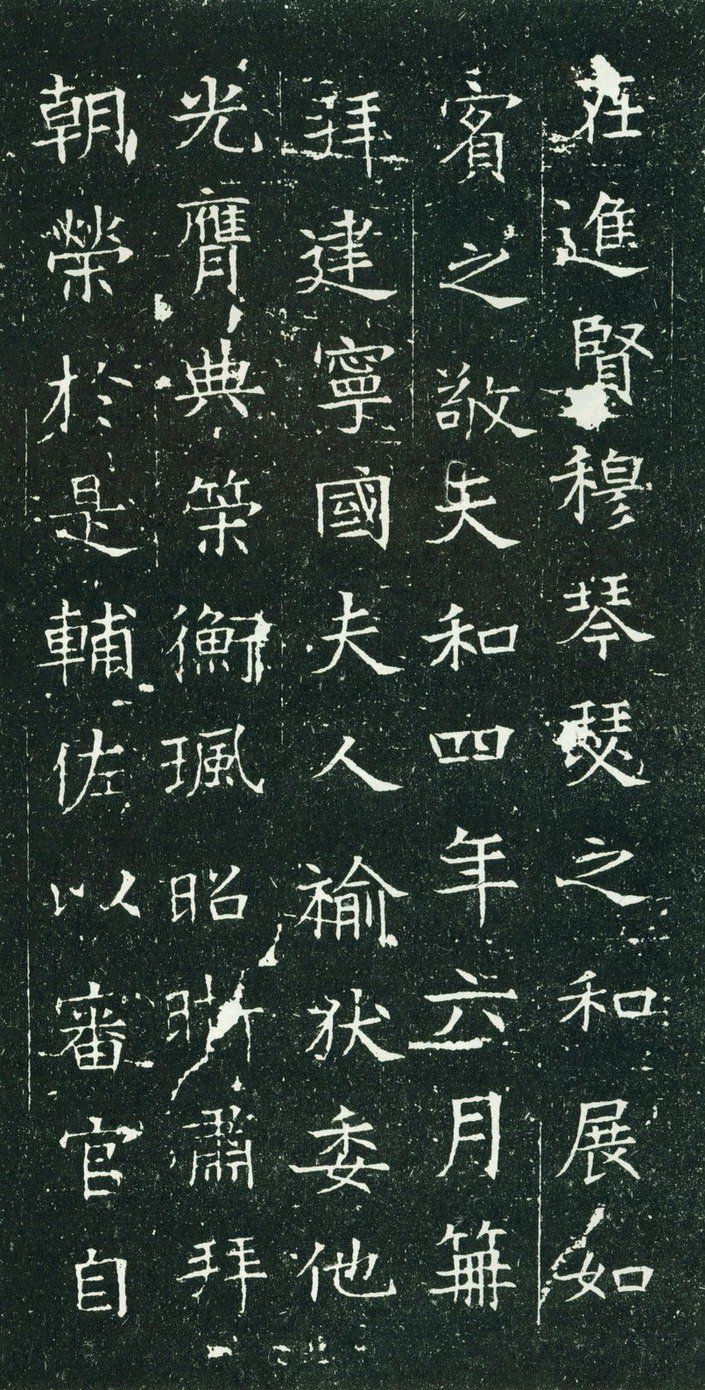 在進賢穆琴瑟之和展如
賓之敬天和四年六月笧
拜建寧國夫人褕狄委他
光膺典筞衡珮昭晰肅拜
朝榮於是輔佐以審官自